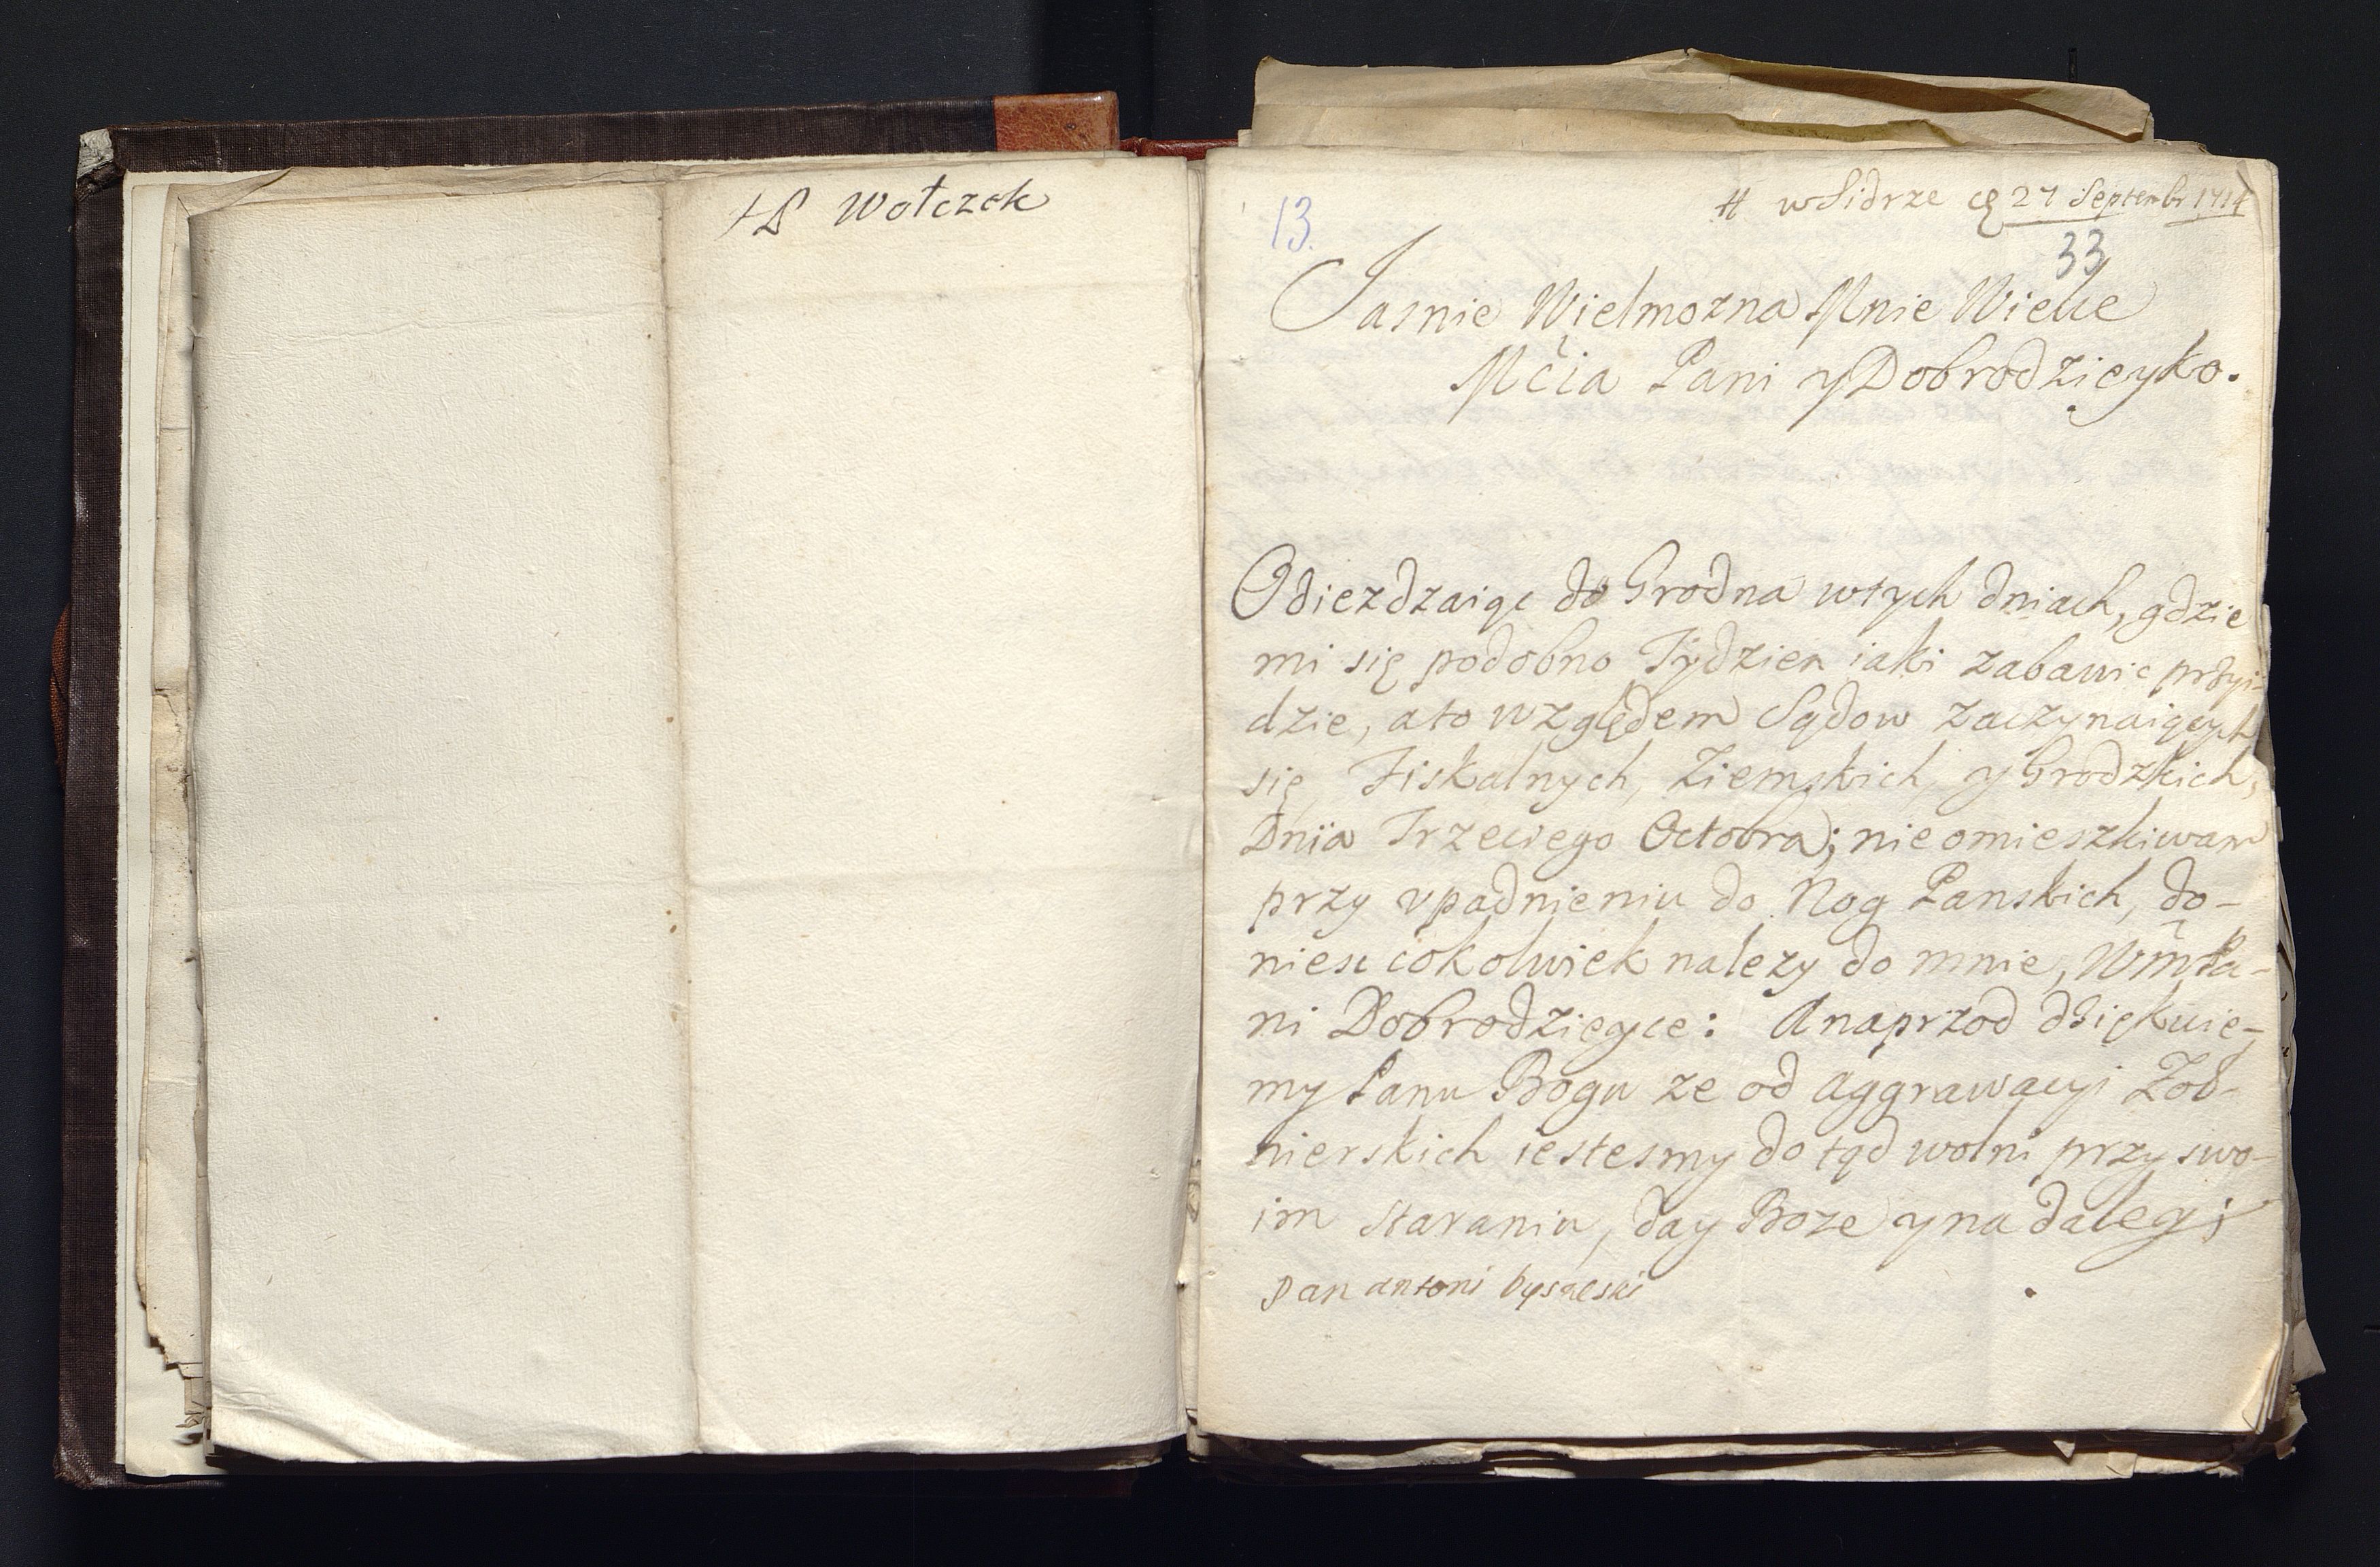 Wołczek
13.
w Sidrze 27 Septembr 1714
33
Jasnie Wielmozna Mnie Wielce
Mcia Pani y Dobrodzieyko.
Odiezdzaiąc do Grodna w tych dniach, gdzie
mi się podobno Tydzien iaki zabawic przyi-
dzie, a to względem Sądow zaczynaiących
się, Fiskalnych, Ziemskich, y Grodzkich,
Dnia Trzeciego Octobra; nie omieszkiwam
przy vpadnieniu do Nog Panskich, do-
niesc cokolwiek nalezy do mnie, WmPa-
ni Dobrodzieyce: A naprzod dziękuie-
my Panu Bogu ze od aggrawacyi Zoł-
nierskich iestesmy do tąd wolni przy swo-
im staraniu, day Boze y na daley;
Pan antoni